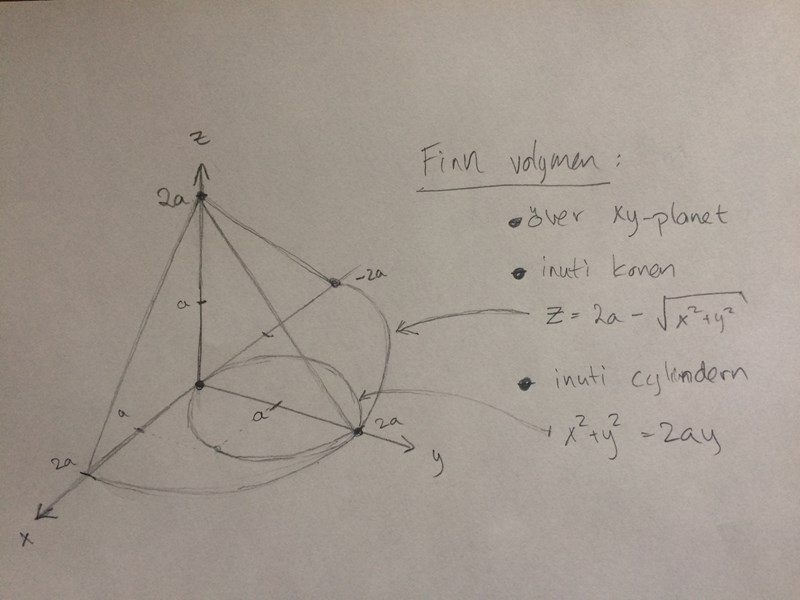 Finn volymen:
• över xy-planet
• inuti konen
z = 2a - √x²+y²
• inuti cylindern
x²+y² = 2ay
z
2a
-2a
a
a
a
2a
2a
y
x